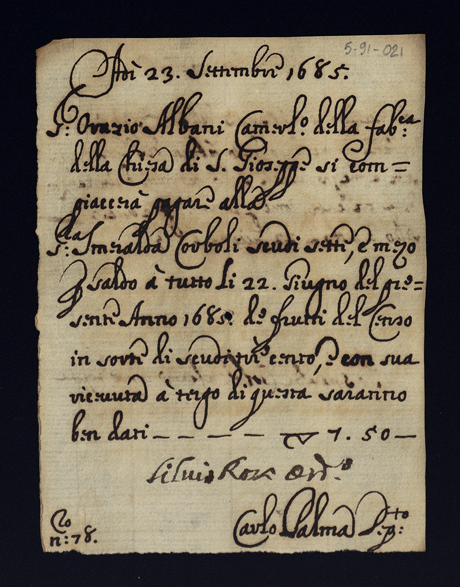 5-91-021
Adì 23. Settembre 1685.
S.r Orazio Albani Camerl.o della fab.ca
della Chiesa di S. Gioseppe si com=
piacerà pagare alla
S.ra Smeralda Corboli scudi sette, e mezo
p saldo à tutto li 22. Giugno del pre=
sente Anno 1685. de frutti del Censo
in sorte di scudi tre cento, e con sua
ricevuta à tergo di questa saranno
ben dati — — — — — ▽ 7.50 —
Silvio
Carlo Palma Seg:to
n:o 78.